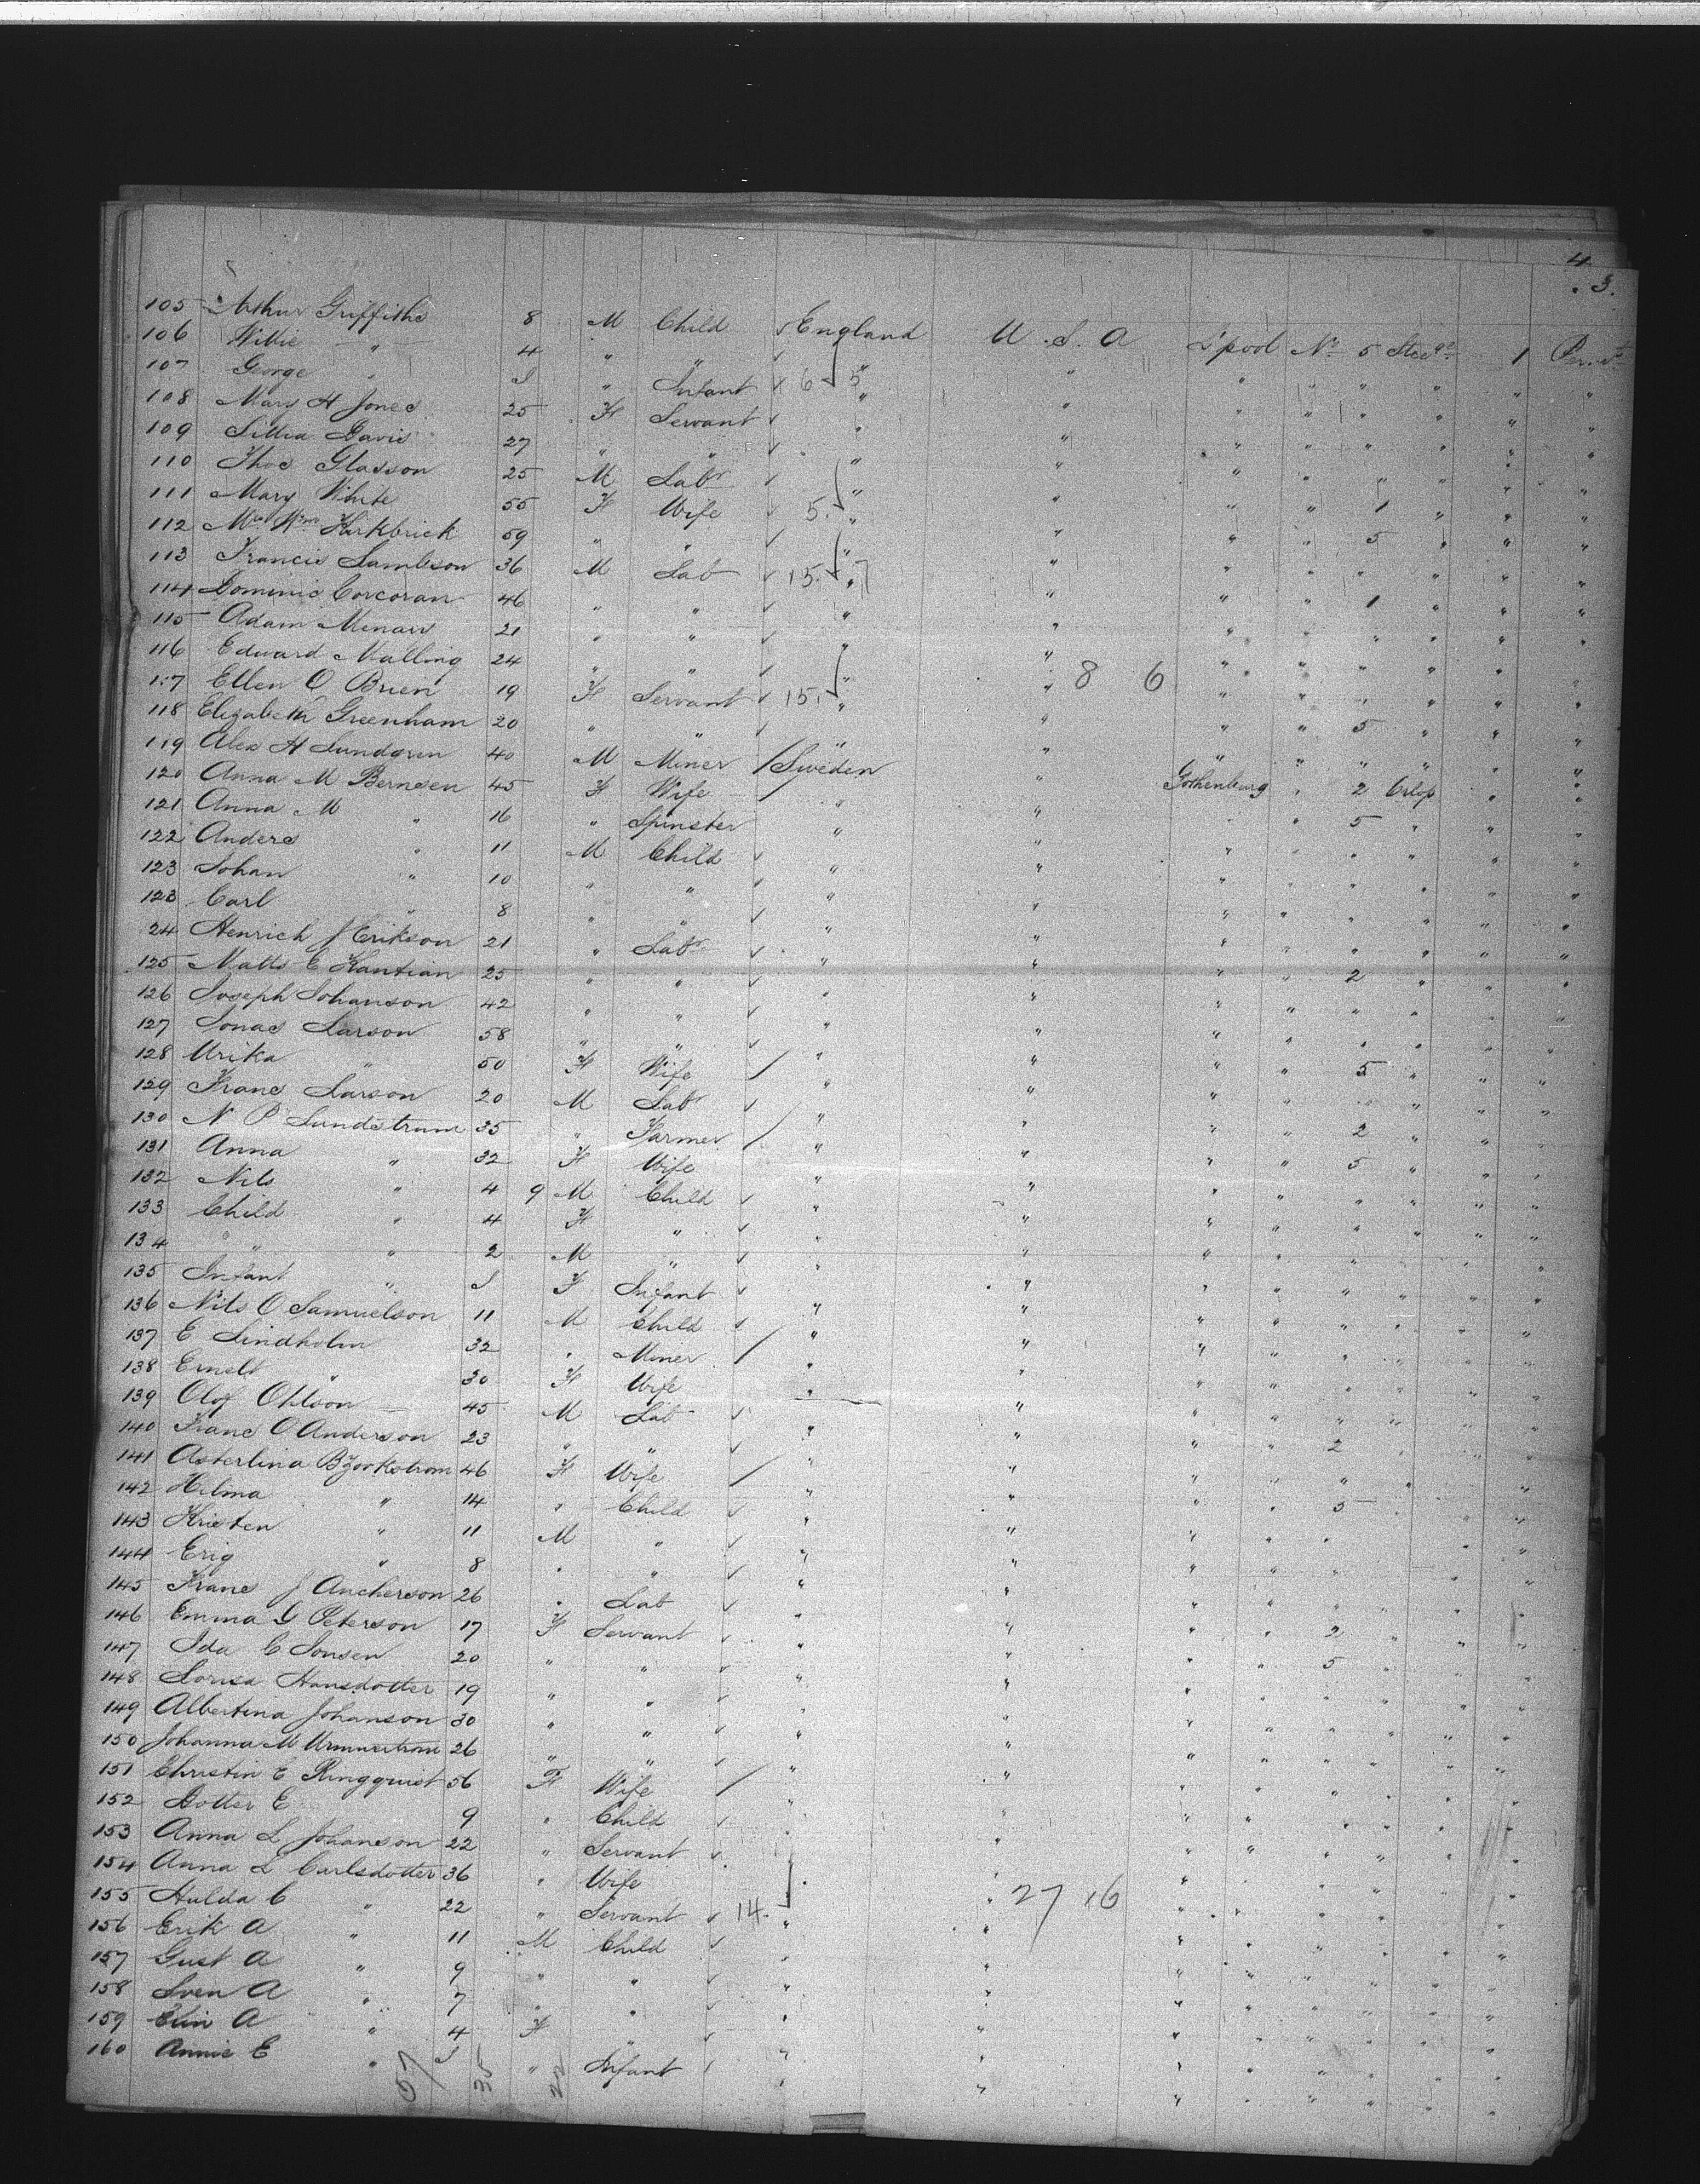 4
3.
105 Arthur Griffiths 8 M Child ✓ England U.S.A L'pool No 5 1
106 Willie " 4 " " ✓ " " " " " " "
107 George " I " Infant ✓ 6 5 " " " " " "
108 Mary H Jones 25 F Servant ✓ " " " " " "
109 Davis 27 " " ✓ " " " " " "
110 Thos Glasson 25 M Labr ✓ " " " " " "
111 Mary White 55 F Wife ✓ 5 " " " " 1 " " "
112 Mrs Wm Kirkbrick 59 " " ✓ " " " " 5 " " "
113 Francis Lambson 36 M Lab ✓ 15 7 " " " " " "
114 Dominic Corcoran 46 " " ✓ " " " " 1 " " "
115 Adam 21 " " ✓ " " " " " " "
116 Edward Malling 24 " " ✓ " " 8 6 " " " " "
117 Ellen O Brien 19 F Servant ✓ 15 " " " " " " "
118 Elizabeth Greenham 20 " " ✓ " " " " 5 " " "
119 Alex H Lundgren 40 M Miner / Sweden " " " " " " "
120 Anna M Bernsen 45 F Wife / " " Gothenburg " 2 Orlop " "
121 Anna M " 16 " Spinster " " " " 5 " " "
122 Anders " 11 M Child ✓ " " " " " " " "
123 Johan " 10 " " ✓ " " " " " " " "
123 Carl " 8 " " ✓ " " " " " " " "
24 Henrich J Erikson 21 " Labr ✓ " " " " " " " "
125 Matts E 25 " " ✓ " " " " 2 " " "
126 Joseph Johanson 42 " " ✓ " " " " " " " "
127 Jonas Larson 58 " " ✓ " " " " " " " "
128 Ulrika " 50 F Wife / " " " " 5 " " "
129 Frans Larson 20 M Labr ✓ " " " " " " " "
130 N P Lundstrum 35 " Farmer / " " " " 2 " " "
131 Anna " 32 F Wife " " " " 5 " " "
132 Nils " 4 9 M Child ✓ " " " " " " " "
133 Child " 4 F " ✓ " " " " " " " "
134 " " 2 M " ✓ " " " " " " " "
135 Infant " I F Infant ✓ " " " " " " " "
136 Nils O Samuelson 11 M Child ✓ " " " " " " " "
137 E Lindholm 32 " Miner / " " " " " " " "
138 " 30 F Wife " " " " " " " "
139 Olof Ohlson 45 M Lab ✓ " " " " " " " "
140 Frans O Anderson 23 " " ✓ " " " " 2 " " "
141 46 F Wife / " " " " " " " "
142 Hilma " 14 " Child ✓ " " " " 5 " " "
143 " 11 M " ✓ " " " " " " " "
144 Erig " 8 " " ✓ " " " " " " " "
145 Frans J 26 " Lab ✓ " " " " " " " "
146 Emma G Peterson 17 F Servant ✓ " " " " 2 " " "
147 Ida C Jonsen 20 " " ✓ " " " " 5 " " "
148 Lovisa Hansdotter 19 " " ✓ " " " " " " " "
149 Albertina Johanson 30 " " ✓ " " " " " " " "
150 Johanna M 26 " " ✓ " " " " " " " "
151 Christin E Ringquist 56 F Wife / " " " " " " " "
152 Dotter E 9 " Child ✓ " " " " " " " "
153 Anna L Johanson 22 " Servant ✓ " " " " " " " "
154 Anna L Carlsdotter 36 " Wife " " " " " " " "
155 Hulda C " 22 " Servant ✓ 14 " 27 16 " " " " "
156 Erik A " 11 M Child ✓ " " " " " " " "
157 Gust A " 9 " " ✓ " " " " " " " "
158 Sven A " 7 " " ✓ " " " " " " " "
159 Elin A " 4 F " ✓ " " " " " " " "
160 Annie E " I " Infant ✓ " " " " " " " "
57 35 22